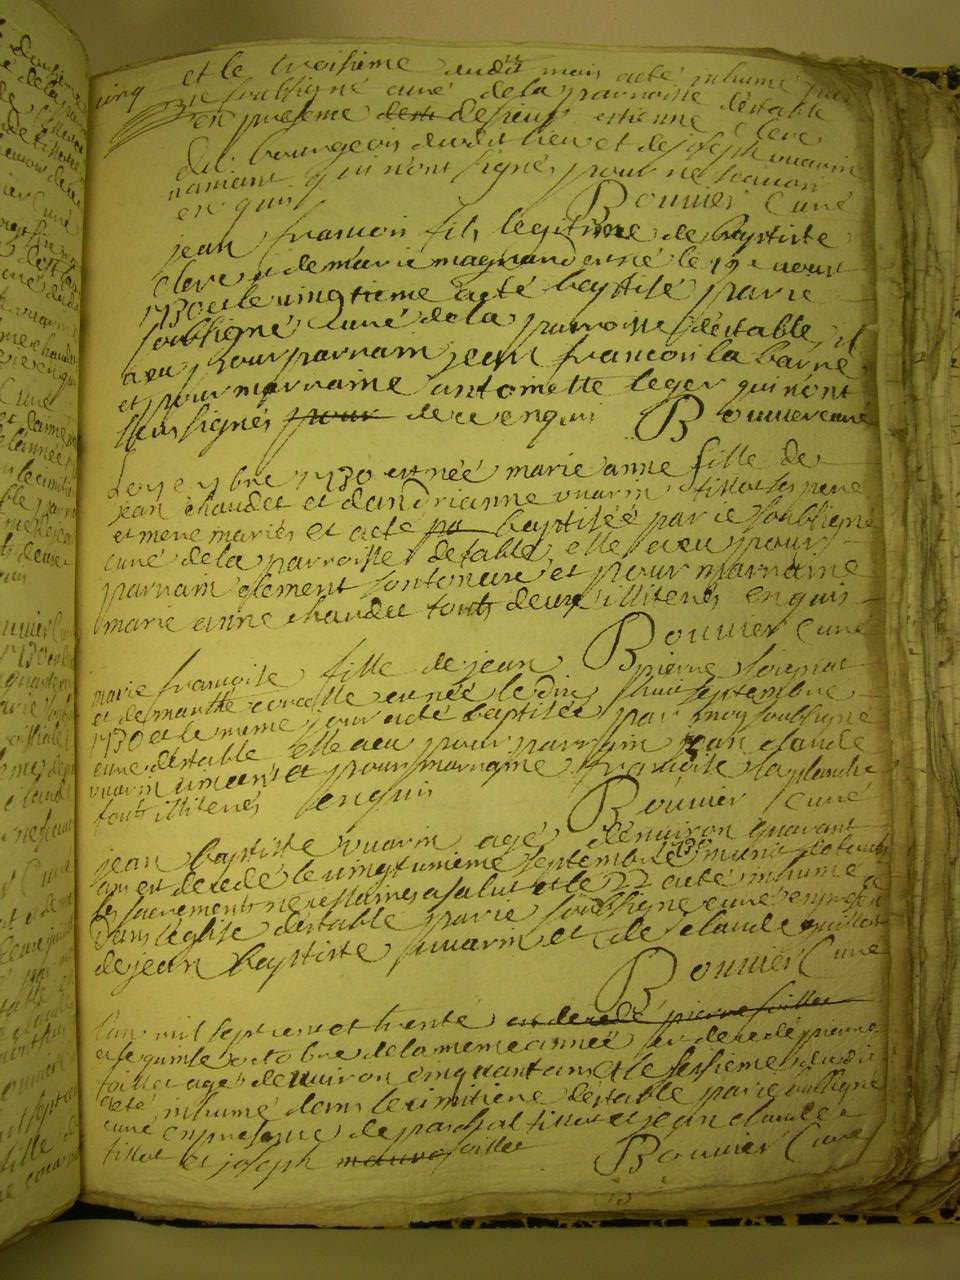 et le troisieme dudit mois a eté inhumé par
cinq je soubsigné curé de la parroisse destable
en presence de sieur estienne Clere
dit bourgeois dudit lieu et de joseph vuarin
qui n'ont signé pour ne scavoir
enquis Bouvier Curé
jean francois fils legitime de baptiste
Clere et de marie magnand est né le 19e aoust
1730 et le vingtieme a eté baptisé par je
soubsigné Curé de la parroisse destable, il
a eu pour parrain jean francois la barne
et pour marraine antoinette leger qui n'ont
sceu signer pour de ce enquis Bouvier curé
Le 9e 7bre 1730 est née marie anne fille de
jean chaudet et dandrianne vuarin tillot ses pere
et mere mariés et a eté pa baptisée par je soubsigné
curé de la parroisse detable, elle a eu pour
parrain clement et pour marraine
marie anne chaudet touts deux illiterés enquis
Bouvier Curé
marie francoise fille de jean pierre
et de marthe est née le dix huit septembre
1730 et le meme jour a eté baptisée par moy soubsigné
curé destable elle a eu pour parrain jean claude
vuarin et pour marraine francoise la planche
touts illiterés enquis Bouvier Curé
jean baptiste vuarin agé denviron quarant
ans est decedé le vingt unieme septembre 1730 muni de touts
les sacrements necessaires a salut et le 22 a eté inhumé
dans leglise destable par je soubsigné curé en presence
de jean baptiste vuarin et de claude
Bouvier Curé
Lan mil sept cent et trente est decedé pierre foillet
et le quinze octobre de la meme année est decedé pierre
foillet agé denviron cinquant ans et le sesieme dudit
a eté inhumé dans le cimitiere destable par je soubsigné
curé en presence de paschal tillot et jean claude
tillot et joseph foillet Bouvier Curé